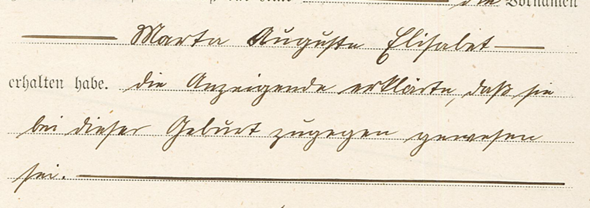 die Vornamen
Marta Auguste Elisabet
erhalten habe. die Anzeigende erklärte, daß sie
bei dieser Geburt zugegen gewesen
sei.